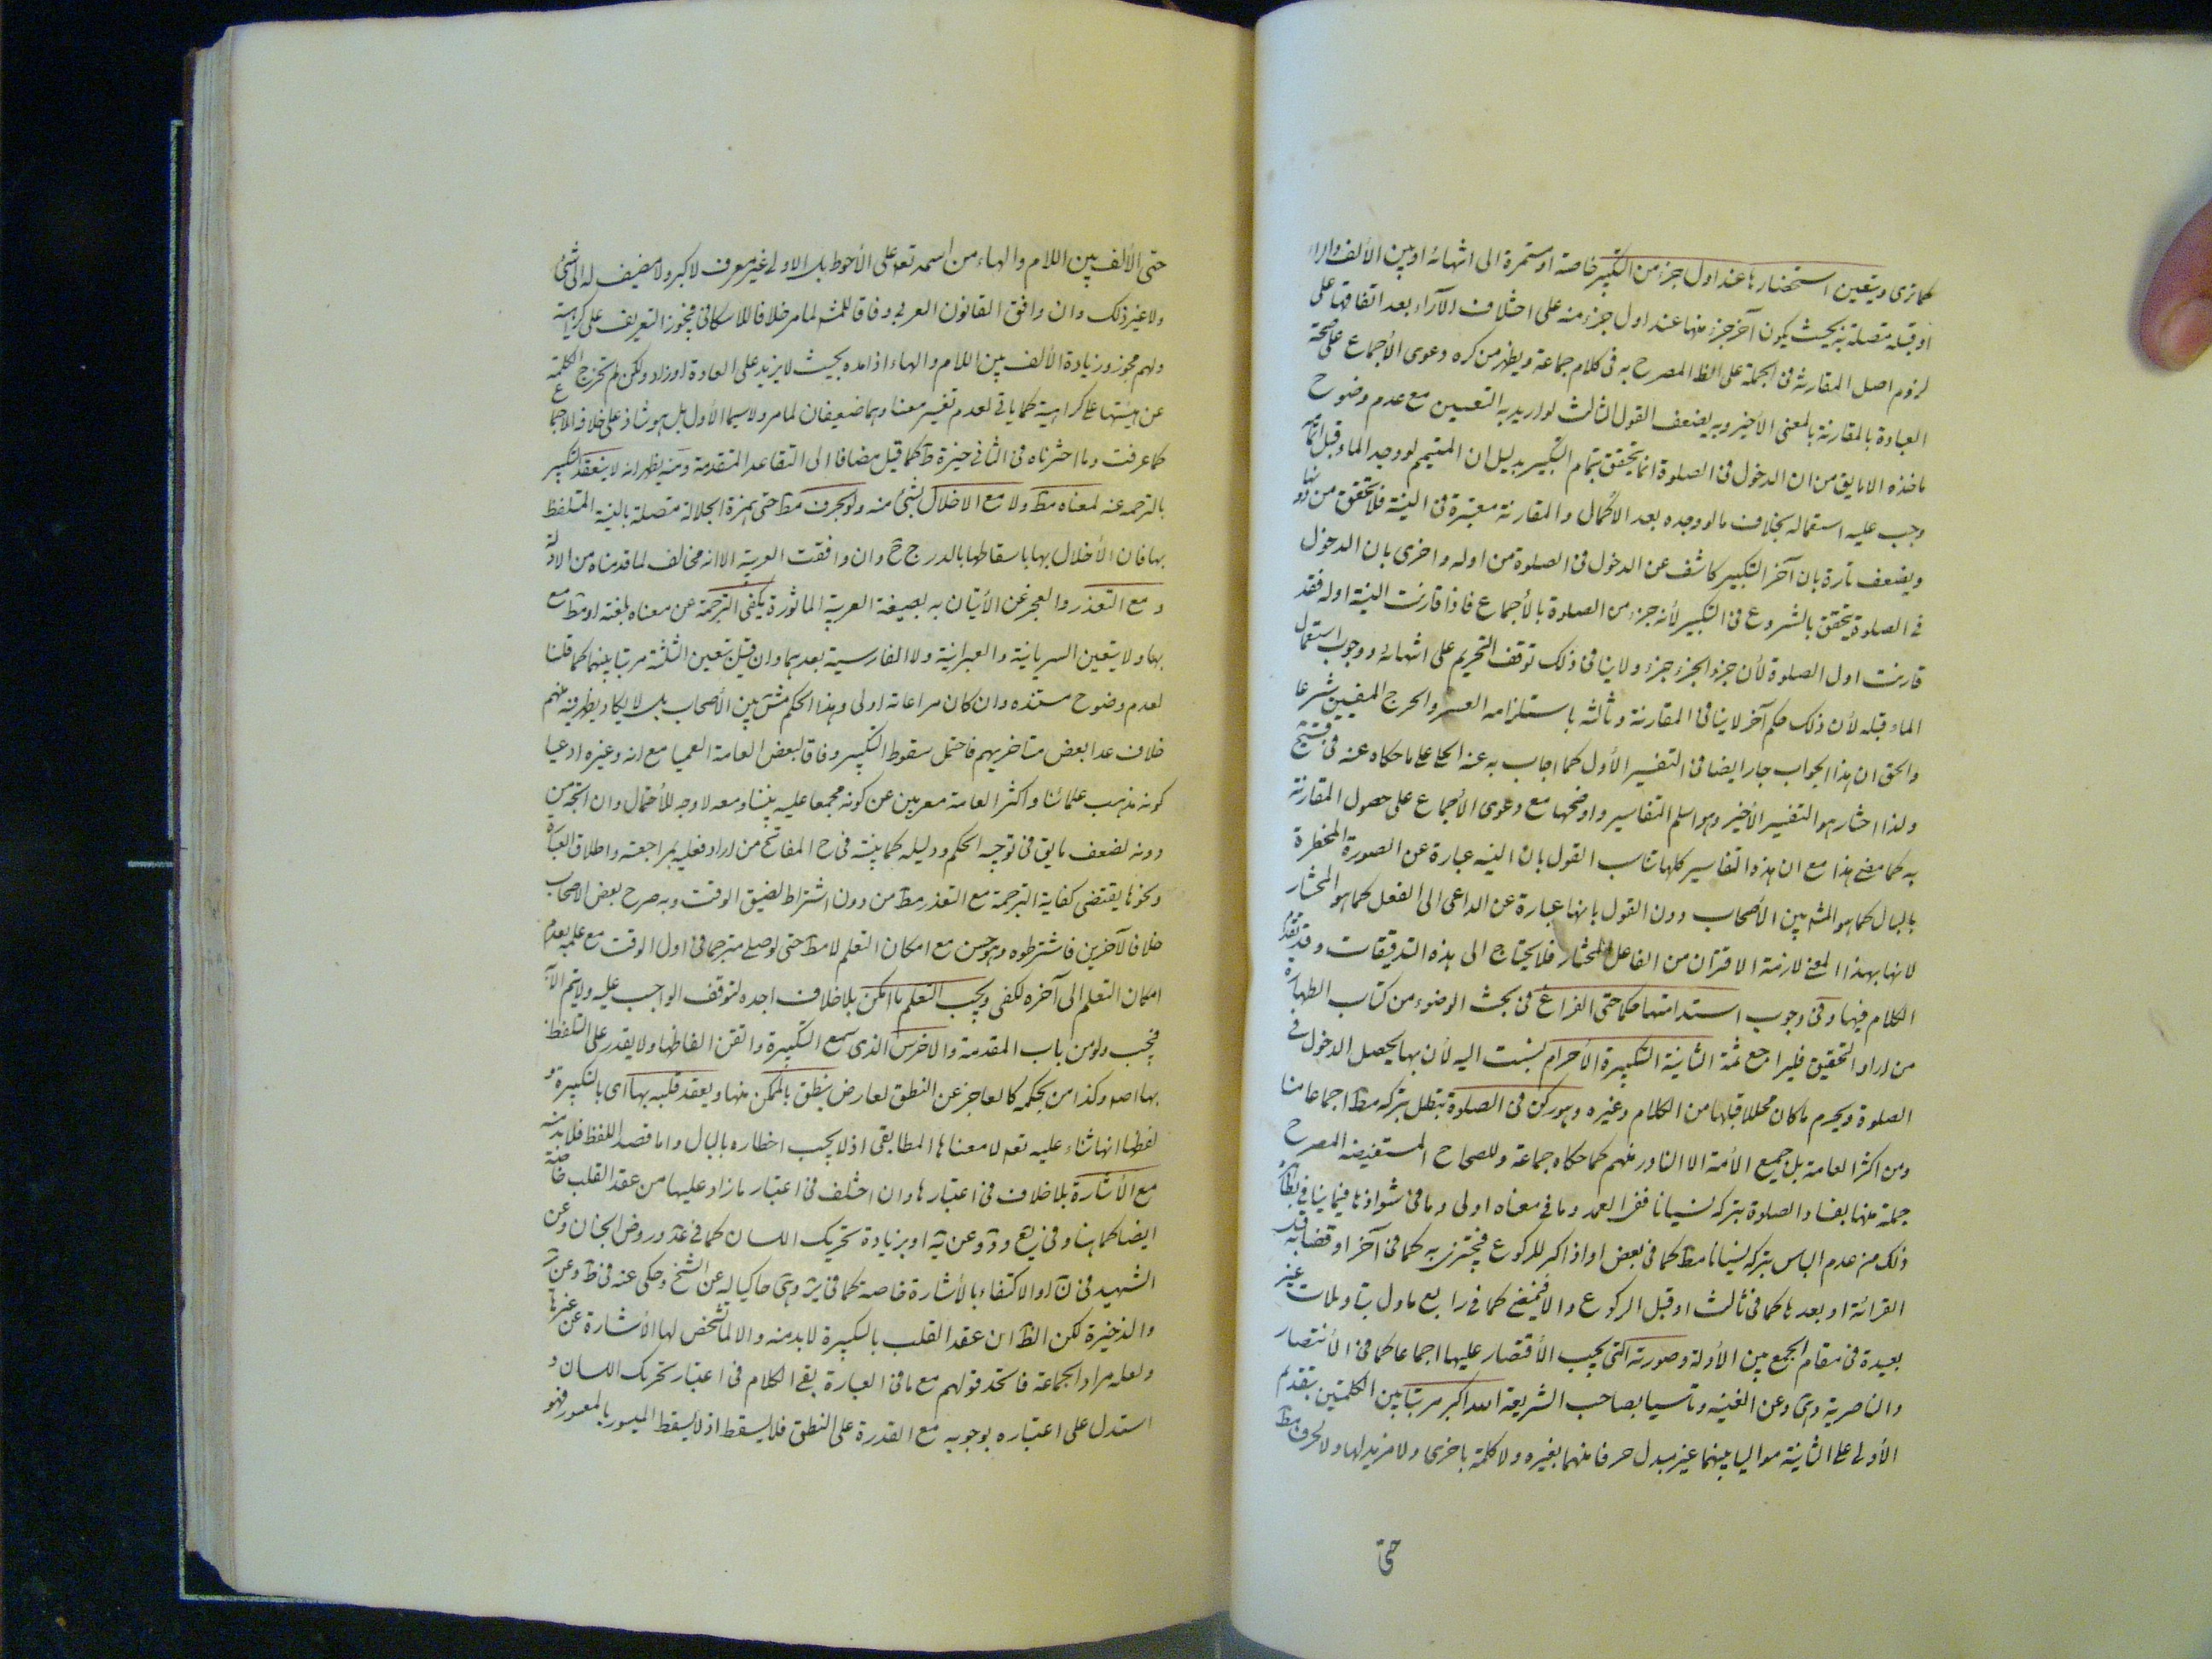 كما ترى ويتعين استحضارها عند اول جزء من التكبير خاصة او مستمرة الى انتهائه او بين الألف والراء
او قبله متصلة به بحيث يكون آخر جزء منها عند اول جزء منه على اختلاف الآراء بعد اتفاقها على
لزوم اصل المقارنة فى الجملة على الظ المصرح به فى كلام جماعة ويظهر من كره دعوى الأجماع على صحة
العبادة بالمقارنة بالمعنى الأخير وبه يضعف القول الثالث لو اريد به التعيين مع عدم وضوح
ماخذه الا ما يق من ان الدخول فى الصلوة انما يتحقق بتمام التكبير بدليل ان المتيمم لو وجد الماء قبل اتمامه
وجب عليه استعماله بخلاف ما لو وجده بعد الأكمال والمقارنة معتبرة فى النية فلا تتحقق من دونها
ويضعف تارة بان آخر التكبير كاشف عن الدخول فى الصلوة من اوله واخرى بان الدخول
فى الصلوة يتحقق بالشروع فى التكبير لأنه جزء من الصلوة بالأجماع فاذا قارنت النية اوله فقد
قارنت اول الصلوة لأن جزء الجزء جزء ولا ينافى ذلك توقف التحريم على انتهائه ووجوب استعمال
الماء قبله لأن ذلك حكم آخر لا ينافى المقارنة وثالثه باستلزامه العسر والحرج المنفيين شرعا
والحق ان هذا الجواب جار ايضا فى التفسير الأول كما اجاب به عنه الحلى على ما حكاه عنه فى
ولذا اختار هو التفسير الأخير وهو اسلم التفاسير واوضحها مع دعوى الأجماع على حصول المقارنة
به كما مضى هذا مع ان هذه التفاسير كلها تناسب القول بان النيه عبارة عن الصورة المخطرة
بالبال كما هو المشه بين الأصحاب دون القول بانها عبارة عن الداعى الى الفعل كما هو المختار
لانها بهذا المعنى لازمة الاقتران من الفاعل المختار فلا يحتاج الى هذه التدقيقات وقد تقدم
الكلام فيها وفى وجوب استدامتها حكما حتى الفراغ فى بحث الوضوء من كتاب الطهارة
من اراد التحقيق فليراجع ثمة الثانية التكبيرة الأحرام نسبت اليه لأن بها يحصل الدخول فى
الصلوة ويحرم ما كان محللا قبلها من الكلام وغيره وهو ركن فى الصلوة تبطل بتركه مط اجماعا منا
ومن اكثر العامة بل جميع الأمة الا النادر منهم كما حكاه جماعة وللصحاح المستفيضة المصرح
جملة منها بفساد الصلوة بتركه نسيانا ففى العمد وما فى معناه اولى وما فى شواذها فيما ينافى بظاهر
ذلك من عدم الباس بتركه نسيانا مط كما فى بعض او اذا كبر للركوع فيجتزى به كما فى آخر او قضائه قبل
القرائة او بعدها كما فى ثالث او قبل الركوع والا فيمضى كما فى رابع ماول بتاويلات غير
بعيدة فى مقام الجمع بين الأدلة وصورته التى يجب الأقتصار عليها اجماعا كما فى الأنتصار
والناصرية وهى وعن الغنيه وتاسيا بصاحب الشريعة الله اكبر مرتبا بين الكلمتين بتقديم
الأولى على الثانية مواليا بينهما غير مبدل حرفا منهما بغيره ولا كلمة باخرى ولا مزيد لها ولا لحرف مط
حتى
حتى الألف بين اللام والهاء من اسمه تعه على الأحوط بل الاولى غير معرف لاكبر ولا مضيف له الى شئ
ولا غير ذلك وان وافق القانون العربى وفاقا للمشه لما مر خلافا للاسكافى فجوز التعريف على كراهية
ولهم مجوز وزيادة الألف بين اللام والهاء اذا مده بحيث لا يزيد على العادة او زاد ولكن لم تخرج الكلمة
عن هيئتها على كراهية كما ياتى لعدم تغيير معناه وهما ضعيفان لما مر ولا سيما الأول بل هو شاذ على خلافه الاجماع
كما عرفت وما اخترناه فى الثانى خيرة ط كما قيل مضافا الى القاعدة المتقدمة ومنه يظهر انه لا ينعقد التكبير
بالترجمه عنه لمعناه مط ولا مع الاخلال بشئ منه ولو بحرف مط حتى همزة الجلالة متصلة بالنية المتلفظ
بها فان الأخلال بها باسقاطها بالدرج ح وان وافقت العربية الا انه مخالف لما قدمناه من الادلة
ومع التعذر والعجز عن الأتيان به بصيغة العربية الماثورة يكفى الترجمة عن معناه بلغته او مط مع
بها ولا يتعين السريانية والعبرانية ولا الفارسية بعدهما وان قيل بتعين الثلثة مرتبا بينهما كما قلنا
لعدم وضوح مستنده وان كان مراعاته اولى وهذا الحكم مشه بين الأصحاب بل لا يكاد يظهر فيه منهم
خلاف عدا بعض متاخريهم فاحتمل سقوط التكبير وفاقا لبعض العامة العمياء مع انه وغيره ادعيا
كونه مذهب علمائنا واكثر العامة معربين عن كونه مجمعا عليه بيننا ومعه لا وجه للأحتمال وان اتجه من
دونه لضعف ما يق فى توجيه الحكم ودليله كما بينته فى ح المفاتيح من اراد فعليه بمراجعته واطلاق العبارة
ونحوها يقتضى كفاية الترجمة مع التعذر مط من دون اشتراط لضيق الوقت وبه صرح بعض الاصحاب
خلافا لآخرين فاشترطوه وهو حسن مع امكان التعلم لا مط حتى لو صلى مترجما فى اول الوقت مع علمه بعدم
امكان التعلم الى آخره لكفى ويجب التعلم ما امكن بلا خلاف اجده لتوقف الواجب عليه ولا يتم الا به
فيجب ولو من باب المقدمة والاخرس الذى سمع التكبيرة واتقن الفاظها ولا يقدر على التلفظ
بها اصلا وكذا من بحكمه كالعاجز عن النطق لعارض ينطق بالممكن منها ويعقد قلبه بها اى بالتكبيرة و
لفظها انها ثناء عليه تعه لا معناها المطابقى اذ لا يجب اخطاره بالبال واما قصد اللفظ فلا بد منه
مع الأشارة بلا خلاف فى اعتبارها وان اختلف فى اعتبار ما زاد عليها من عقد القلب خاصة
ايضا كما هنا وفى يع و وعن ية او بزيادة تحريك اللسان كما فى عد وروض الجنان وعن
الشهيد فى ن او الاكتفاء بالأشارة خاصة كما فى ير وهى حاكيا له عن الشيخ وحكى عنه فى ط وعن
والذخيرة لكن الظ ان عقد القلب بالتكبيرة لابد منه والا لما تشخص لها الأشارة عن غيرها
ولعله مراد الجماعة فاتحد قولهم مع ما فى العبارة بقى الكلام فى اعتبار تحريك اللسان و
استدل على اعتباره بوجوبه مع القدرة على النطق فلا يسقط اذ لا يسقط الميسور بالمعسور فهو